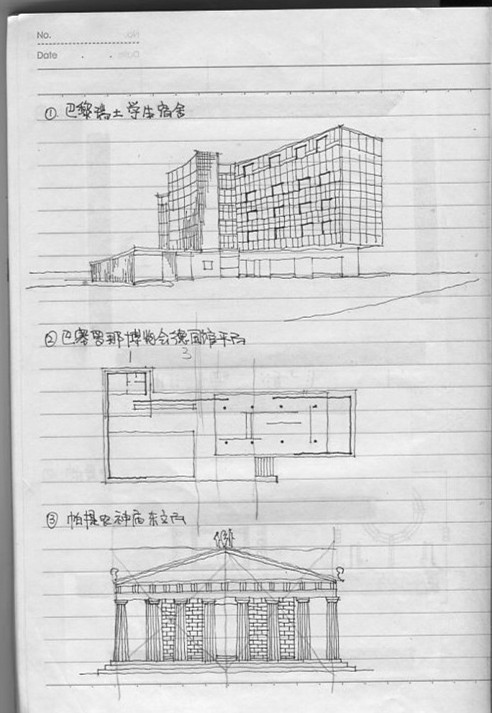 No.
Date
① 巴黎瑞士学生宿舍
② 巴塞罗那博览会德国馆平面
1 3
③ 帕提农神庙东立面